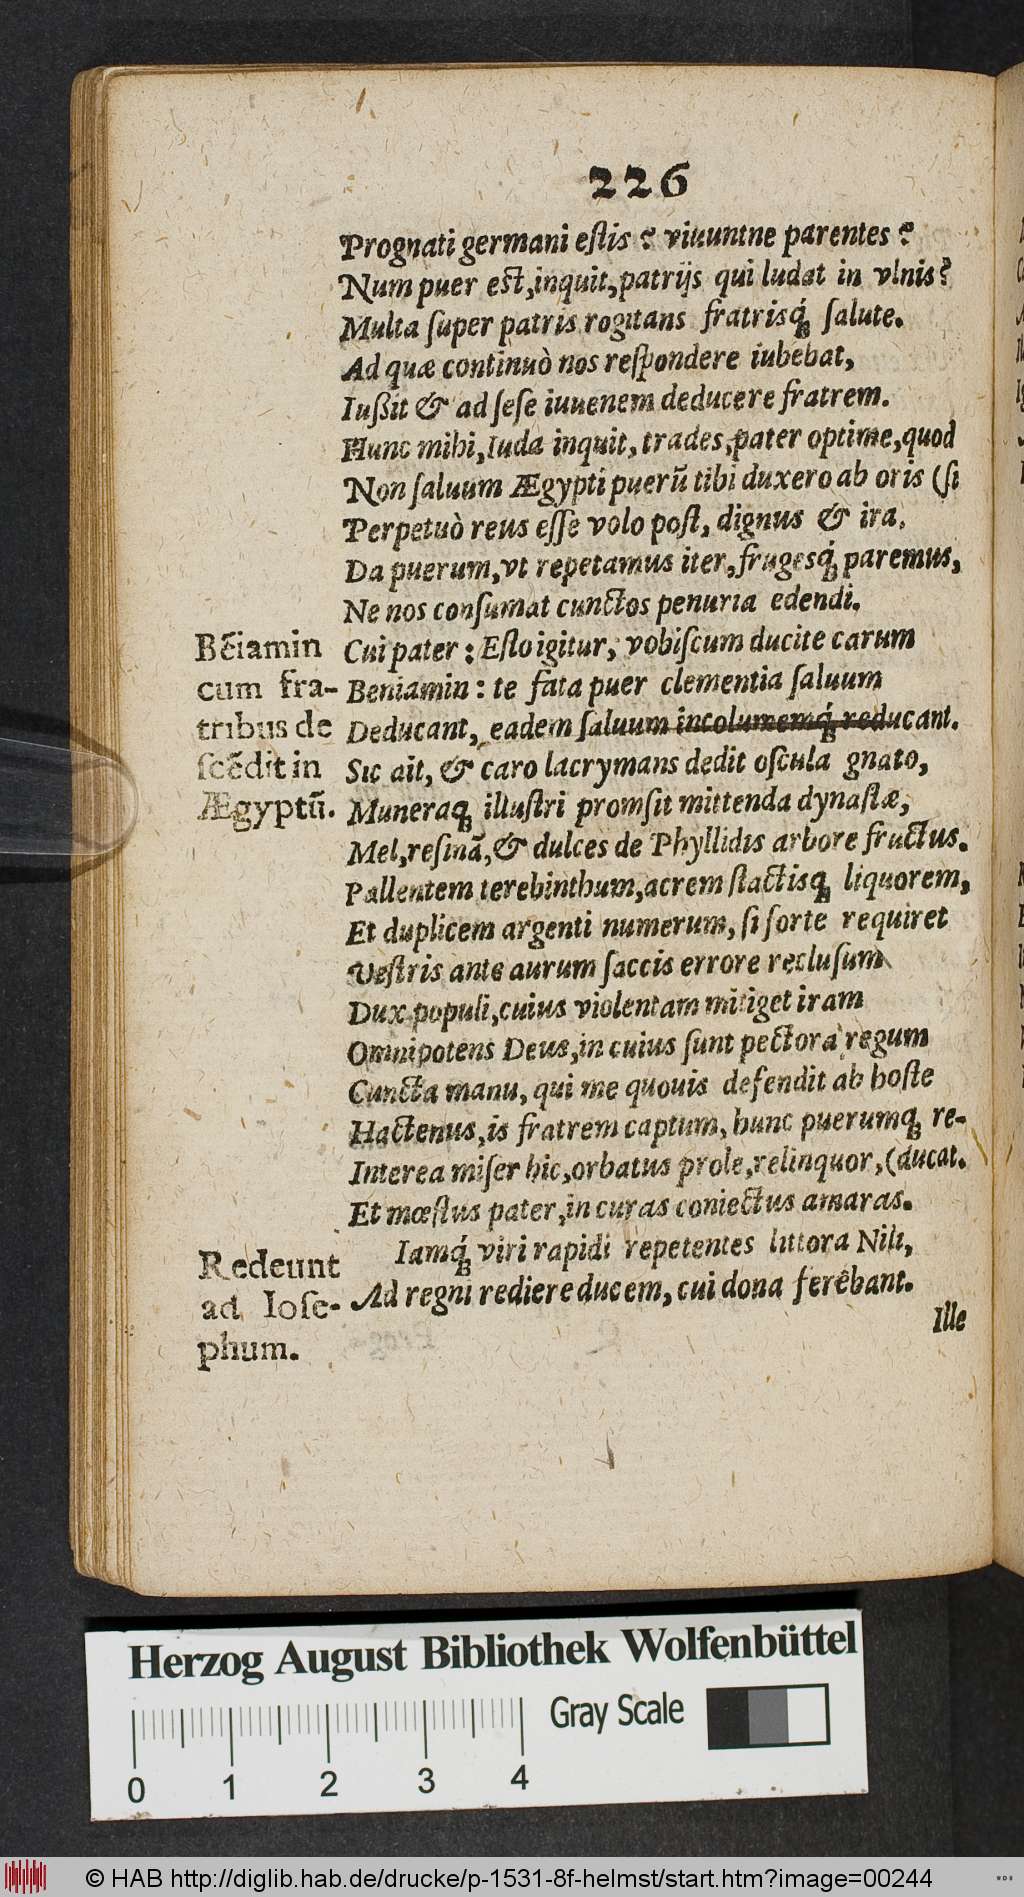 226
Prognati germani eſtis? viuuntne parentes?
Num puer est,inquit,patrijs qui ludat in vlnis?
Multa ſuper patris rogitans fratrisq́; ſalute.
Ad quæ continuò nos reſpondere iubebat,
Iußit & ad ſeſe iuuenem deducere fratrem.
Hunc mihi,Iuda inquit, trades,pater optime,quod
Non ſaluum Ægypti puerũ tibi duxero ab oris (ſi
Perpetuò reus eſſe volo poſt, dignus & ira.
Da puerum,vt repetamus iter,frugesq́; paremus,
Ne nos conſumat cunctos penuria edendi.
Bẽiamin
cum fra-
tribus de
ſcẽdit in
Ægyptũ.
Cui pater: Eſto igitur, vobiſcum ducite carum
Beniamin: te fata puer clementia ſaluum
Deducant, eadem ſaluum incolumemq́; reducant.
Sic ait, & caro lacrymans dedit oſcula gnato,
Muneraq; illuſtri promſit mittenda dynaſtæ,
Mel,reſinã,& dulces de Phyllidis arbore fructus.
Pallentem terebinthum,acrem ſtactisq; liquorem,
Et duplicem argenti numerum, ſi forte requiret
Veſtris ante aurum ſaccis errore recluſum
Dux populi,cuius violentam mitiget iram
Omnipotens Deus,in cuius ſunt pectora regum
Cuncta manu, qui me quouis defendit ab hoſte
Hactenus,is fratrem captum, hunc puerumq; re-
Interea miſer hic,orbatus prole,relinquor,(ducat.
Et mœſtus pater,in curas coniectus amaras.
Redeunt
ad Ioſe-
phum.
Iamq́; viri rapidi repetentes littora Nili,
Ad regni rediere ducem, cui dona ferêbant.
Ille
Herzog August Bibliothek Wolfenbüttel
Gray Scale
0 1 2 3 4
© HAB http://diglib.hab.de/drucke/p-1531-8f-helmst/start.htm?image=00244